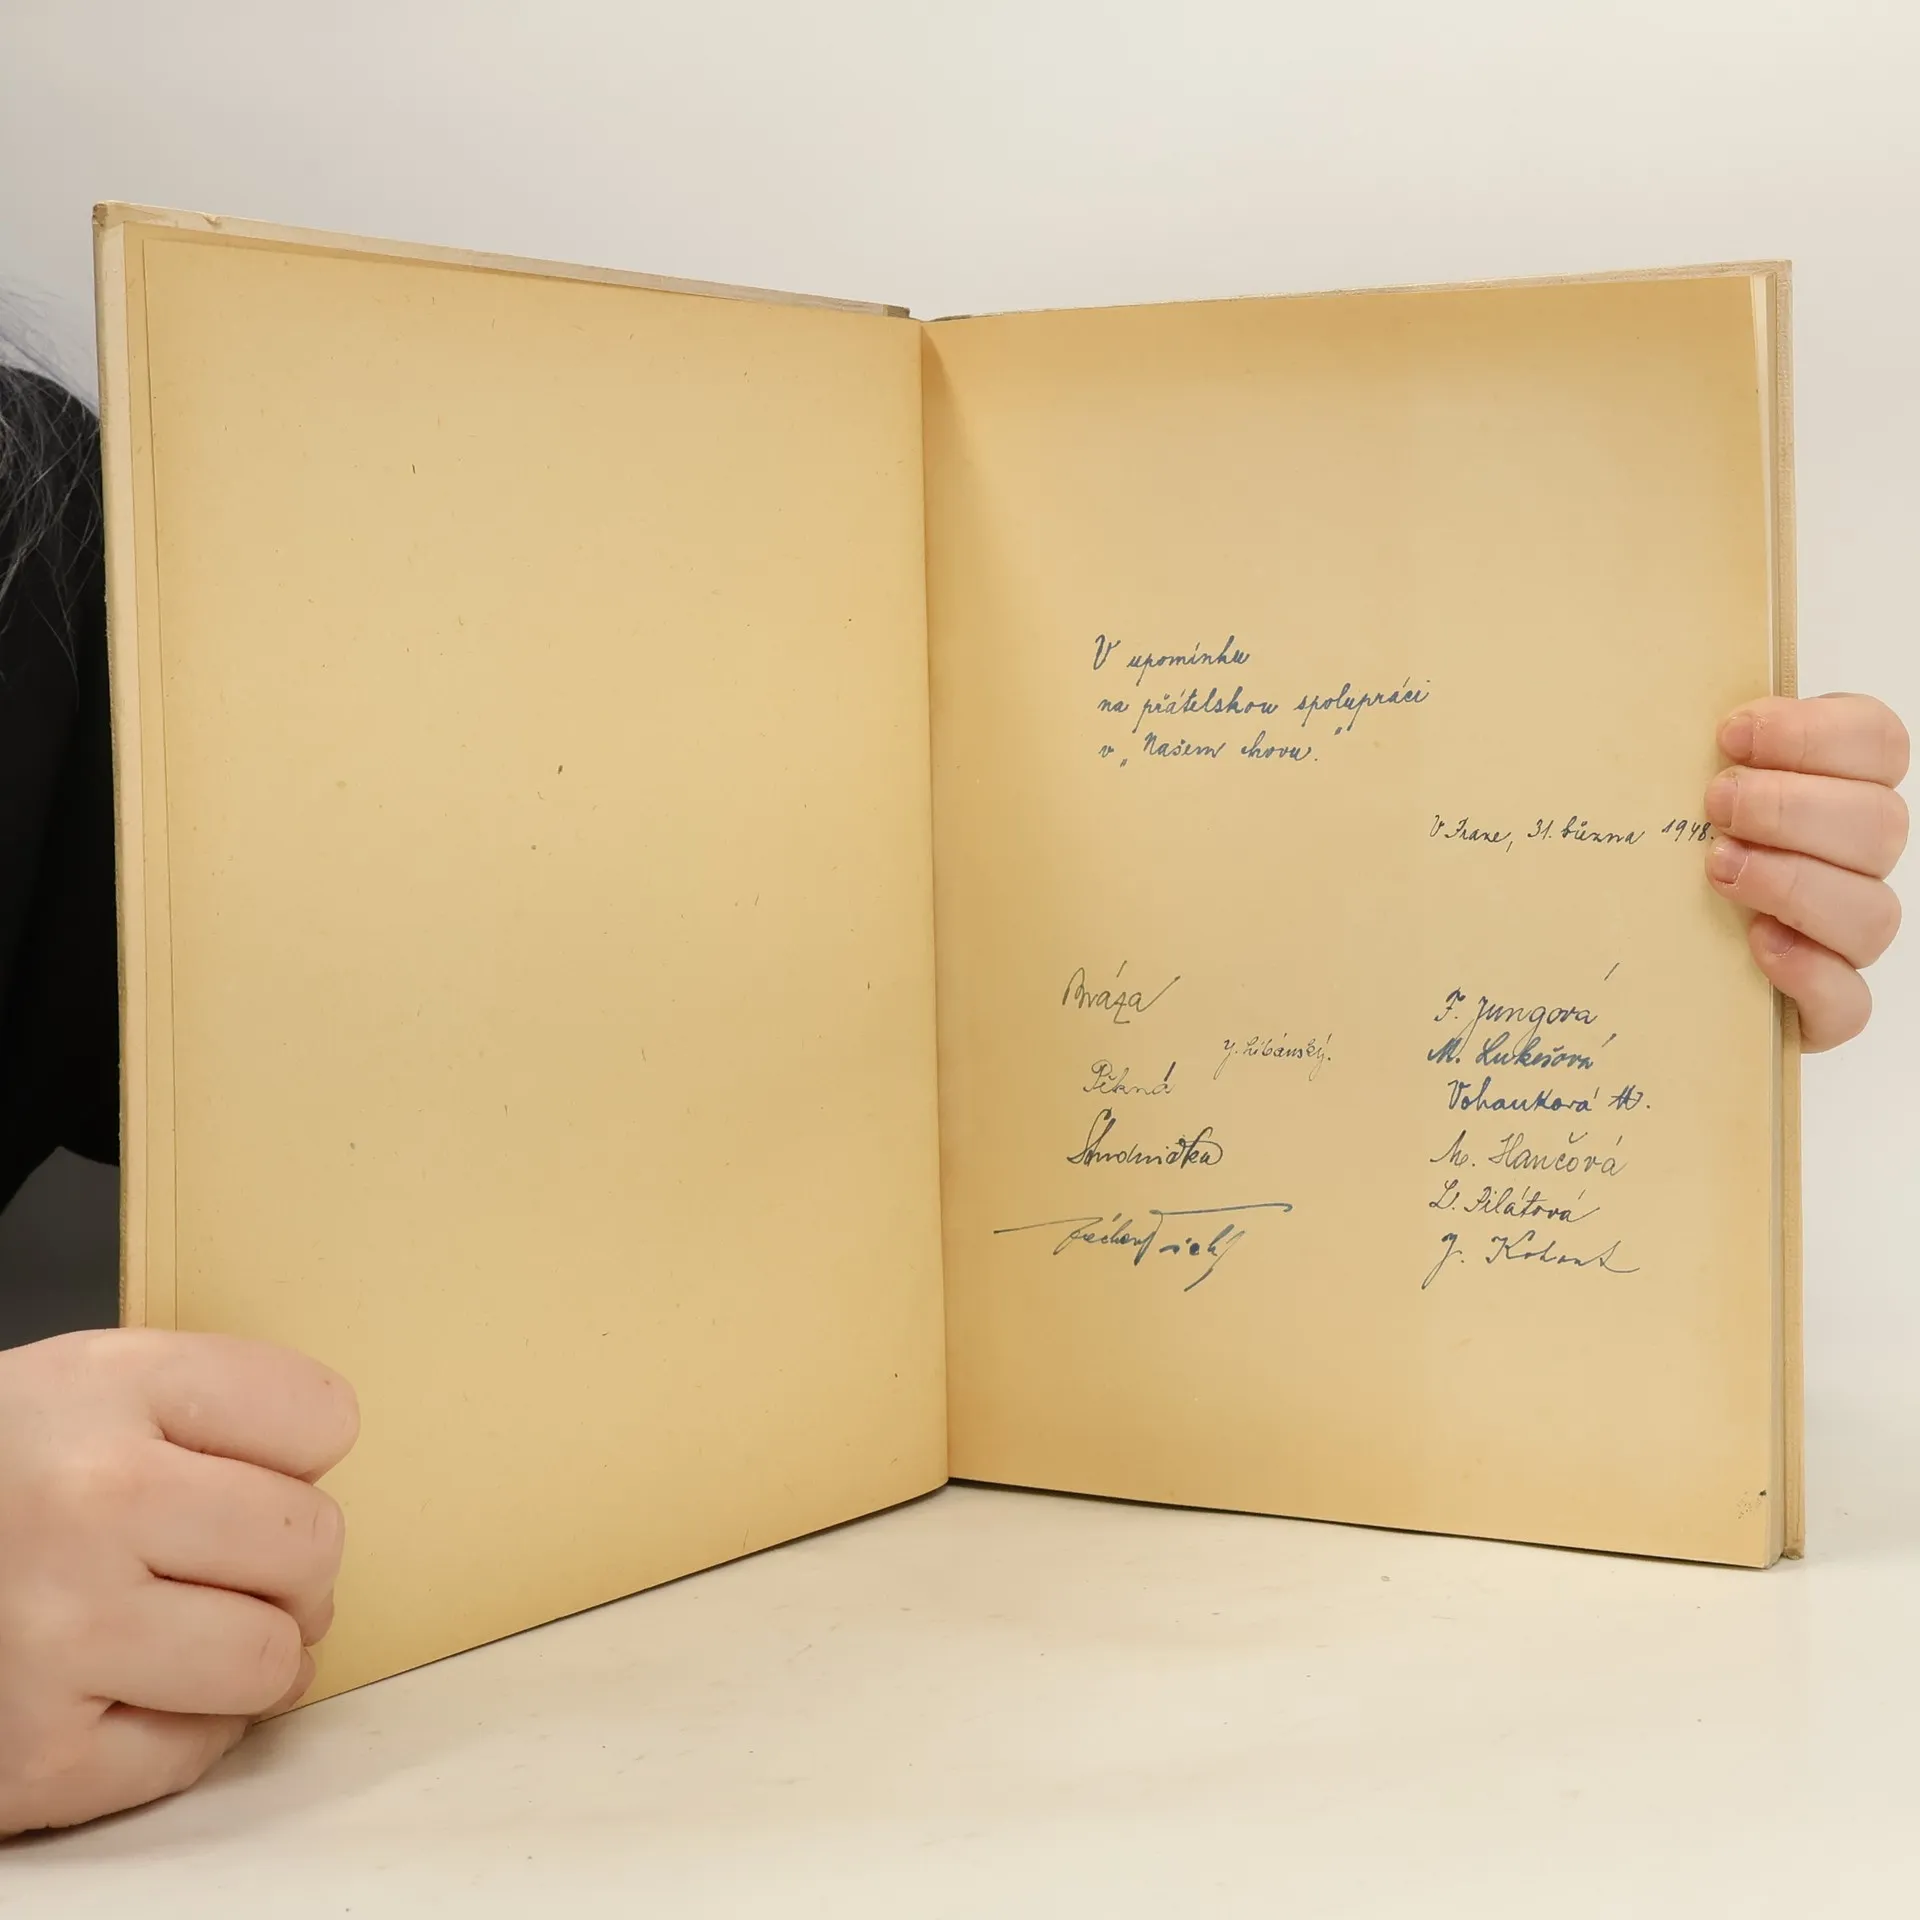 V upomínku
na přátelskou spolupráci
v „Našem chovu."
V Praze, 31. března 1948.
J. Libánský.
Pěkná
Studnička
F. Jungová
M. Lukešová
Vohanková M.
M. Hančová
L. Pilátová
J. Kohout